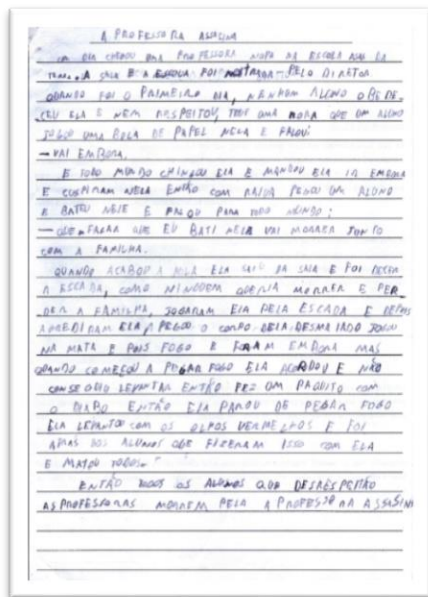 A PROFESSORA ASASINA
UM DIA CHEGOU UMA PROFESSORA NOVA NA ESCOLA
A SALA E A ESCOLA FOI MOSTRADA PELO DIRETOR
QUANDO FOI O PRIMEIRO DIA, NENHUM ALUNO OBEDE-
CEU ELA E NEM RESPEITOU, TEVE UMA HORA QUE UM ALUNO
JOGOU UMA BOLA DE PAPEL NELA E FALOU:
— VAI EMBORA.
E TODO MUNDO CHINGOU ELA E MANDOU ELA IR EMBORA
E CUSPIRAM NELA ENTÃO COM RAIVA PEGOU UM ALUNO
E BATEU NELE E FALOU PARA TODO MUNDO:
— QUEM FALAR QUE EU BATI NELA VAI MORRER JUNTO
COM A FAMILHA.
QUANDO ACABOU A AULA ELA SAIU DA SALA E FOI DECER
A ESCADA, COMO NINGUEM QUERIA MORRER E PER-
DER A FAMILHA, JOGARAM ELA PELA ESCADA E DEPOIS
APREDIRAM ELA, PEGOU O CORPO DELA DESMAIADO JOGOU
NA MATA E POIS FOGO E FORAM EMBORA MAS
QUANDO COMEÇOU A PEGAR FOGO ELA ACORDOU E NÃO
CONSEGUIU LEVANTAR ENTÃO FEZ UM PAQUITO COM
O DIABO ENTÃO ELA PAROU DE PEGAR FOGO
ELA LEVANTOU COM OS OLHOS VERMELHOS E FOI
ATRAS DOS ALUNOS QUE FIZERAM ISSO COM ELA
E MATOU TODOS."
ENTÃO TODOS OS ALUNOS QUE DESRESPEITÃO
AS PROFESSORAS MORREM PELA A PROFESSORA ASSASINA